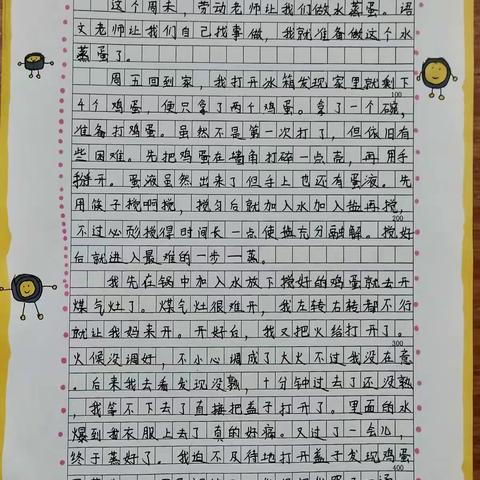 这个周末，劳动老师让我们做水蒸蛋。语
文老师让我们自己找事做，我就准备做这个水
蒸蛋了。
周五回到家，我打开冰箱发现家里就剩下
100
4个鸡蛋，便只拿了两个鸡蛋。拿了一个碗，
准备打鸡蛋。虽然不是第一次打了，但依旧有
些困难。先把鸡蛋在墙角打碎一点壳，再用手
掰开。蛋液虽然出来了但手上也还有蛋液。先
用筷子搅啊搅，搅匀后就加入水加入盐再搅，
200
不过必形搅得时间长一点使盐充分融解。搅好
后就进入最难的一步—蒸。
我先在锅中加入水放下搅好的鸡蛋就去开
煤气灶了。煤气灶很难开，我左转右转都不行
就让我妈来开。开好后，我又把火给打开了。
300
火候没调好，不小心调成了大火不过我没在意
。后来我去看发现没熟，十分钟过去了还没熟
，我等不下去了直接把盖子打开了。里面的水
爆到我衣服上去了真的好痛。又过了一会儿，
终于蒸好了。我迫不及待地打开盖子发现鸡蛋
400